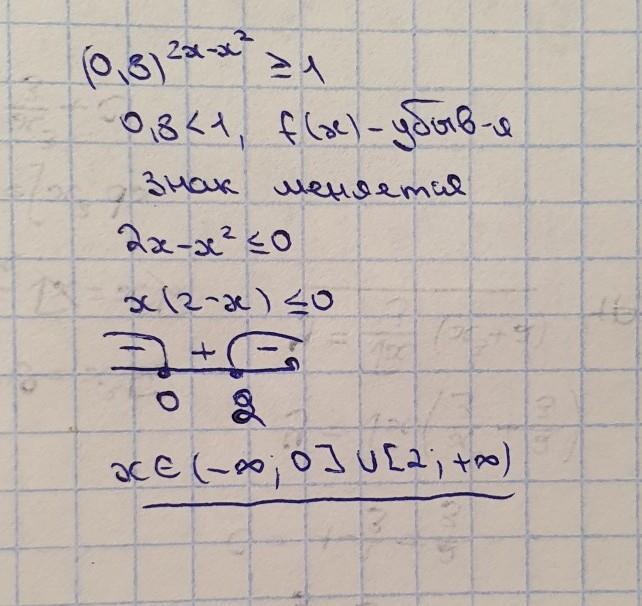 (0,8)^{2x-x²} ≥ 1
0,8 < 1, f(x) - убыв-я
знак меняется
2x-x² ≤ 0
x(2-x) ≤ 0
- + -
0 2
x ∈ (-∞; 0] ∪ [2; +∞)